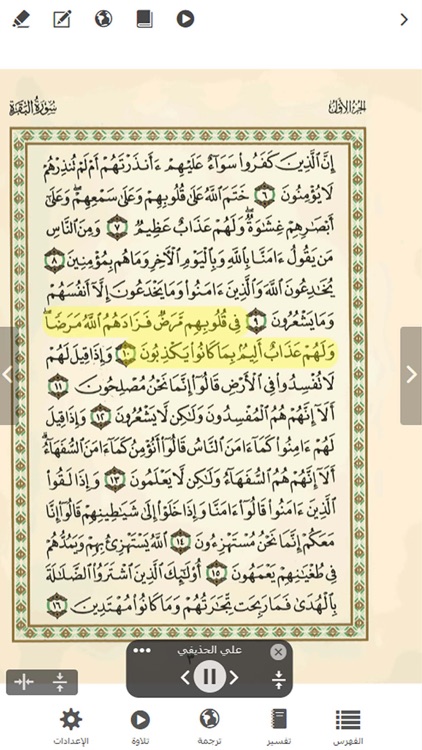 الجزء الأول
سورة البقرة
إِنَّ ٱلَّذِينَ كَفَرُوا۟ سَوَآءٌ عَلَيْهِمْ ءَأَنذَرْتَهُمْ أَمْ لَمْ تُنذِرْهُمْ
لَا يُؤْمِنُونَ ٦ خَتَمَ ٱللَّهُ عَلَىٰ قُلُوبِهِمْ وَعَلَىٰ سَمْعِهِمْ ۖ وَعَلَىٰٓ
أَبْصَٰرِهِمْ غِشَٰوَةٌ ۖ وَلَهُمْ عَذَابٌ عَظِيمٌ ٧ وَمِنَ ٱلنَّاسِ
مَن يَقُولُ ءَامَنَّا بِٱللَّهِ وَبِٱلْيَوْمِ ٱلْءَاخِرِ وَمَا هُم بِمُؤْمِنِينَ ٨
يُخَٰدِعُونَ ٱللَّهَ وَٱلَّذِينَ ءَامَنُوا۟ وَمَا يَخْدَعُونَ إِلَّآ أَنفُسَهُمْ
وَمَا يَشْعُرُونَ ٩ فِى قُلُوبِهِم مَّرَضٌ فَزَادَهُمُ ٱللَّهُ مَرَضًا ۖ
وَلَهُمْ عَذَابٌ أَلِيمٌۢ بِمَا كَانُوا۟ يَكْذِبُونَ ١٠ وَإِذَا قِيلَ لَهُمْ
لَا تُفْسِدُوا۟ فِى ٱلْأَرْضِ قَالُوٓا۟ إِنَّمَا نَحْنُ مُصْلِحُونَ ١١
أَلَآ إِنَّهُمْ هُمُ ٱلْمُفْسِدُونَ وَلَٰكِن لَّا يَشْعُرُونَ ١٢ وَإِذَا قِيلَ
لَهُمْ ءَامِنُوا۟ كَمَآ ءَامَنَ ٱلنَّاسُ قَالُوٓا۟ أَنُؤْمِنُ كَمَآ ءَامَنَ ٱلسُّفَهَآءُ ۗ
أَلَآ إِنَّهُمْ هُمُ ٱلسُّفَهَآءُ وَلَٰكِن لَّا يَعْلَمُونَ ١٣ وَإِذَا لَقُوا۟
ٱلَّذِينَ ءَامَنُوا۟ قَالُوٓا۟ ءَامَنَّا وَإِذَا خَلَوْا۟ إِلَىٰ شَيَٰطِينِهِمْ قَالُوٓا۟ إِنَّا
مَعَكُمْ إِنَّمَا نَحْنُ مُسْتَهْزِءُونَ ١٤ ٱللَّهُ يَسْتَهْزِئُ بِهِمْ وَيَمُدُّهُمْ
فِى طُغْيَٰنِهِمْ يَعْمَهُونَ ١٥ أُو۟لَٰٓئِكَ ٱلَّذِينَ ٱشْتَرَوُا۟ ٱلضَّلَٰلَةَ
بِٱلْهُدَىٰ فَمَا رَبِحَت تِّجَٰرَتُهُمْ وَمَا كَانُوا۟ مُهْتَدِينَ ١٦
علي الحذيفي
٣
الفهرس
تفسير
ترجمة
تلاوة
الإعدادات